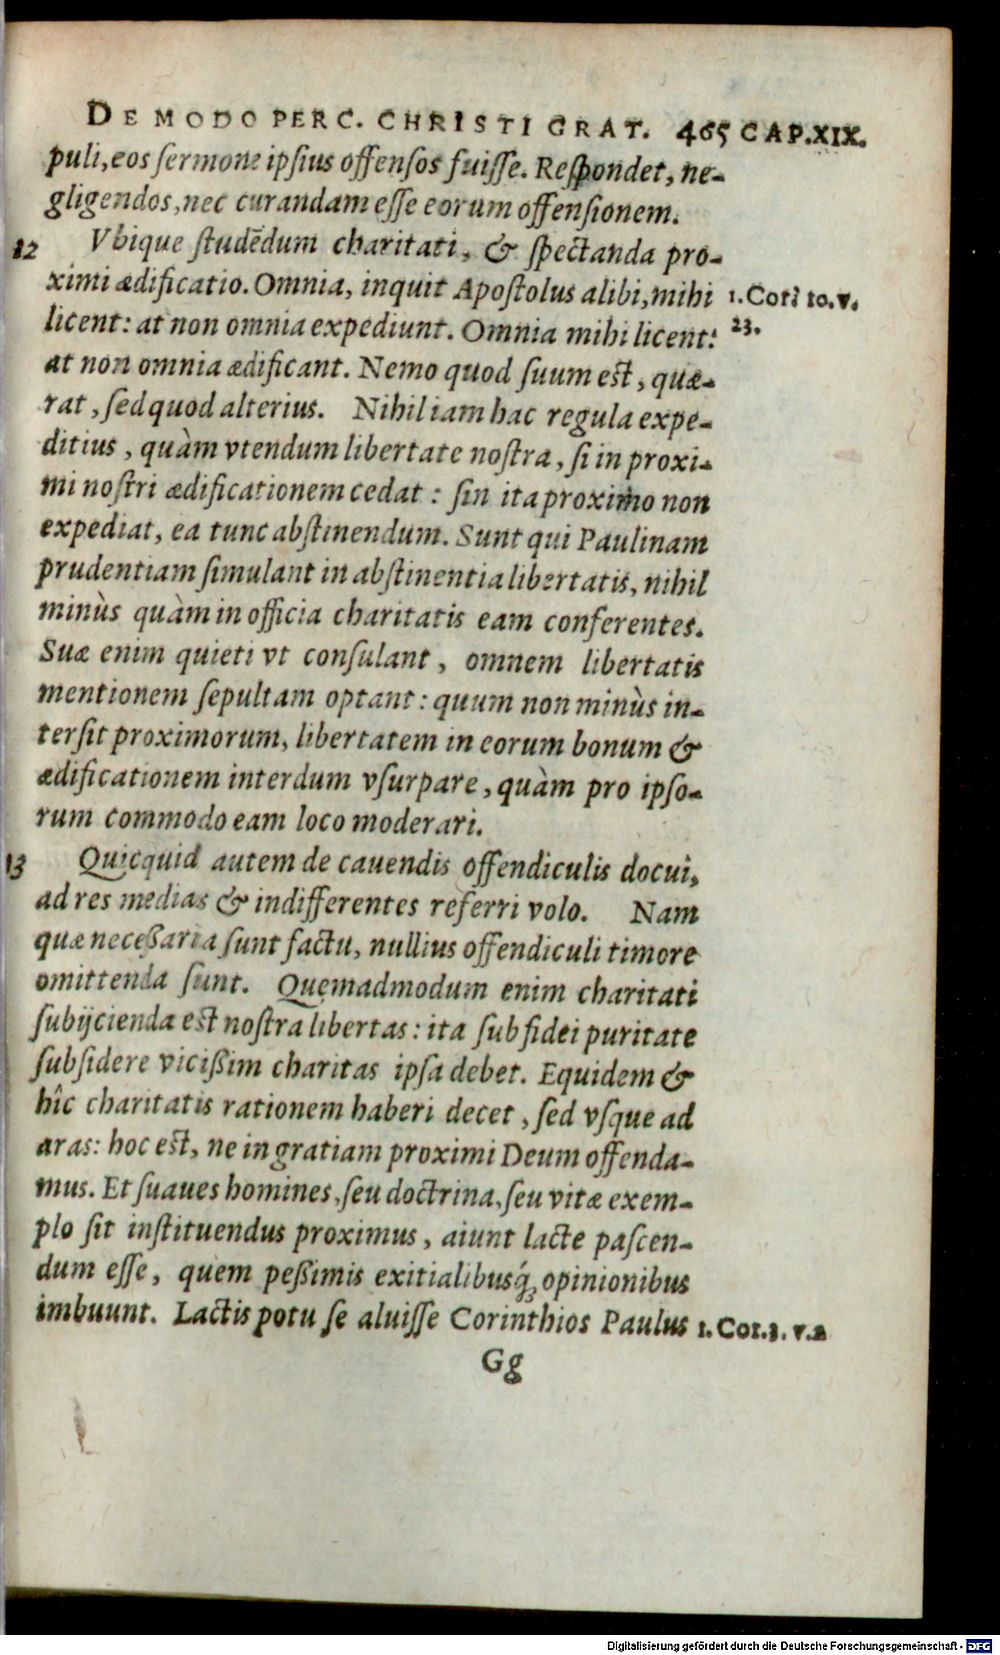 DE MODO PERC. CHRISTI GRAT. 465 CAP.XIX.
puli, eos sermone ipsius offensos fuisse. Respondet, ne-
gligendos, nec curandam esse eorum offensionem.
12 Vbique studēdum charitati, & spectanda pro-
ximi ædificatio. Omnia, inquit Apostolus alibi, mihi 1. Cori 10. v.
licent: at non omnia expediunt. Omnia mihi licent: 23.
at non omnia ædificant. Nemo quod suum est, quæ-
rat, sed quod alterius. Nihil iam hac regula expe-
ditius, quàm vtendum libertate nostra, si in proxi-
mi nostri ædificationem cedat: sin ita proximo non
expediat, ea tunc abstinendum. Sunt qui Paulinam
prudentiam simulant in abstinentia libertatis, nihil
minùs quàm in officia charitatis eam conferentes.
Suæ enim quieti vt consulant, omnem libertatis
mentionem sepultam optant: quum non minùs in-
tersit proximorum, libertatem in eorum bonum &
ædificationem interdum vsurpare, quàm pro ipso-
rum commodo eam loco moderari.
13 Quicquid autem de cauendis offendiculis docui,
ad res medias & indifferentes referri volo. Nam
quæ neceßaria sunt factu, nullius offendiculi timore
omittenda sunt. Quemadmodum enim charitati
subijcienda est nostra libertas: ita sub fidei puritate
subsidere vicißim charitas ipsa debet. Equidem &
hîc charitatis rationem haberi decet, sed vsque ad
aras: hoc est, ne in gratiam proximi Deum offenda-
mus. Et suaues homines, seu doctrina, seu vitæ exem-
plo sit instituendus proximus, aiunt lacte pascen-
dum esse, quem peßimis exitialibusq́; opinionibus
imbuunt. Lactis potu se aluisse Corinthios Paulus 1. Cor. 3. v. 2
Gg
Digitalisierung gefördert durch die Deutsche Forschungsgemeinschaft - DFG